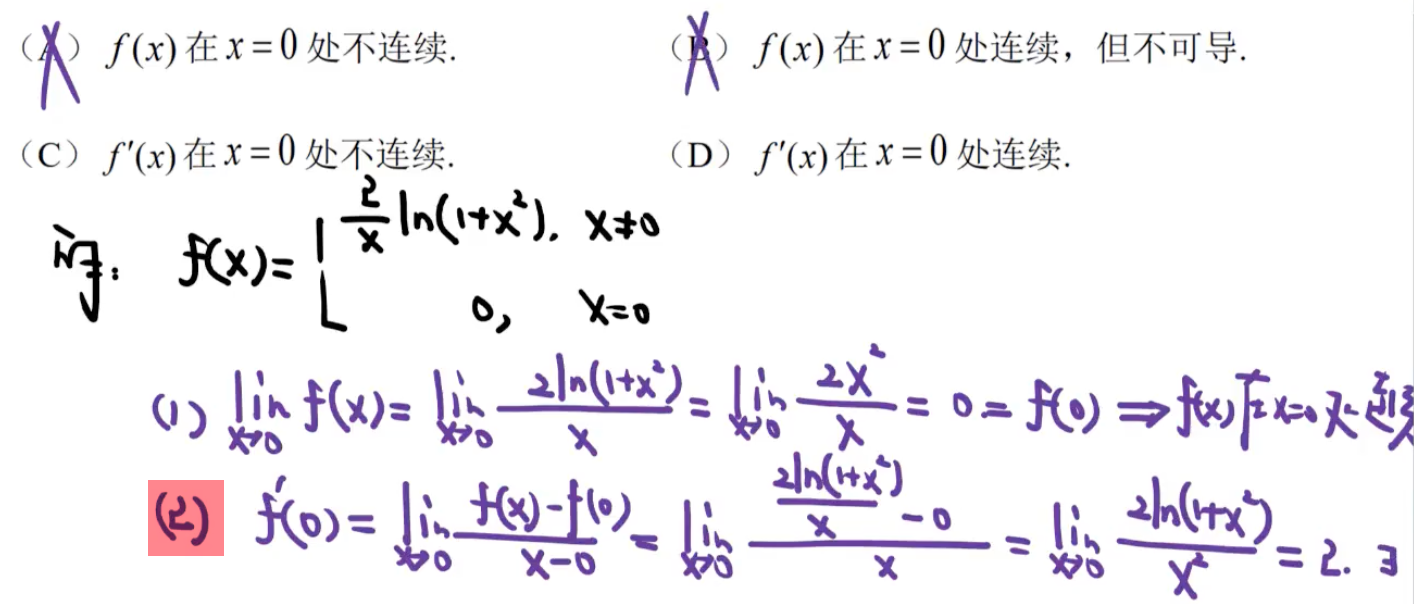 (A) f(x) 在 x = 0 处不连续. (B) f(x) 在 x = 0 处连续，但不可导.
(C) f′(x) 在 x = 0 处不连续. (D) f′(x) 在 x = 0 处连续.
f(x) = { 2/x ln(1+x²), x≠0
0, x=0
(1) lim x→0 f(x) = lim x→0 2ln(1+x²)/x = lim x→0 2x²/x = 0 = f(0) ⇒ f(x) 在 x=0 处连续
(2) f′(0) = lim x→0 (f(x)-f(0))/(x-0) = lim x→0 (2ln(1+x²)/x - 0)/x = lim x→0 2ln(1+x²)/x² = 2. ∃